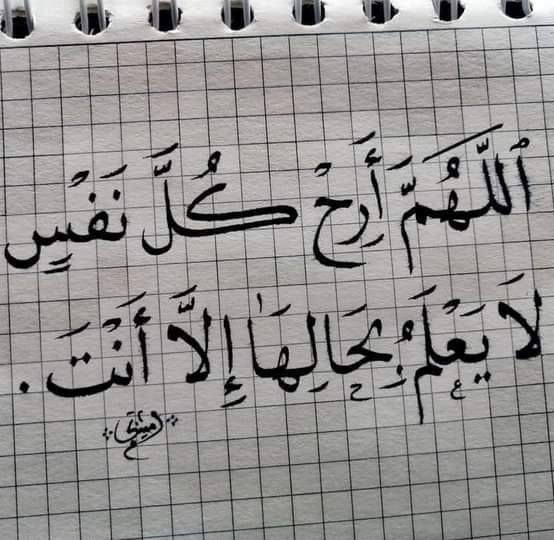 اَللَّهُمَّ أَرِحْ كُلَّ نَفْسٍ
لَا يَعْلَمُ بِحَالِهَا إِلَّا أَنْتَ.